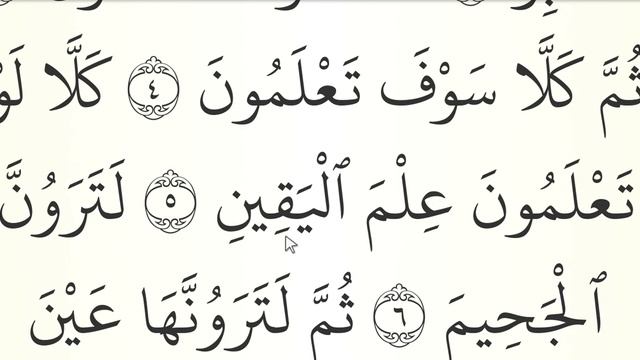 ثُمَّ كَلَّا سَوْفَ تَعْلَمُونَ ٤ كَلَّا لَوْ
تَعْلَمُونَ عِلْمَ ٱلْيَقِينِ ٥ لَتَرَوُنَّ
ٱلْجَحِيمَ ٦ ثُمَّ لَتَرَوُنَّهَا عَيْنَ